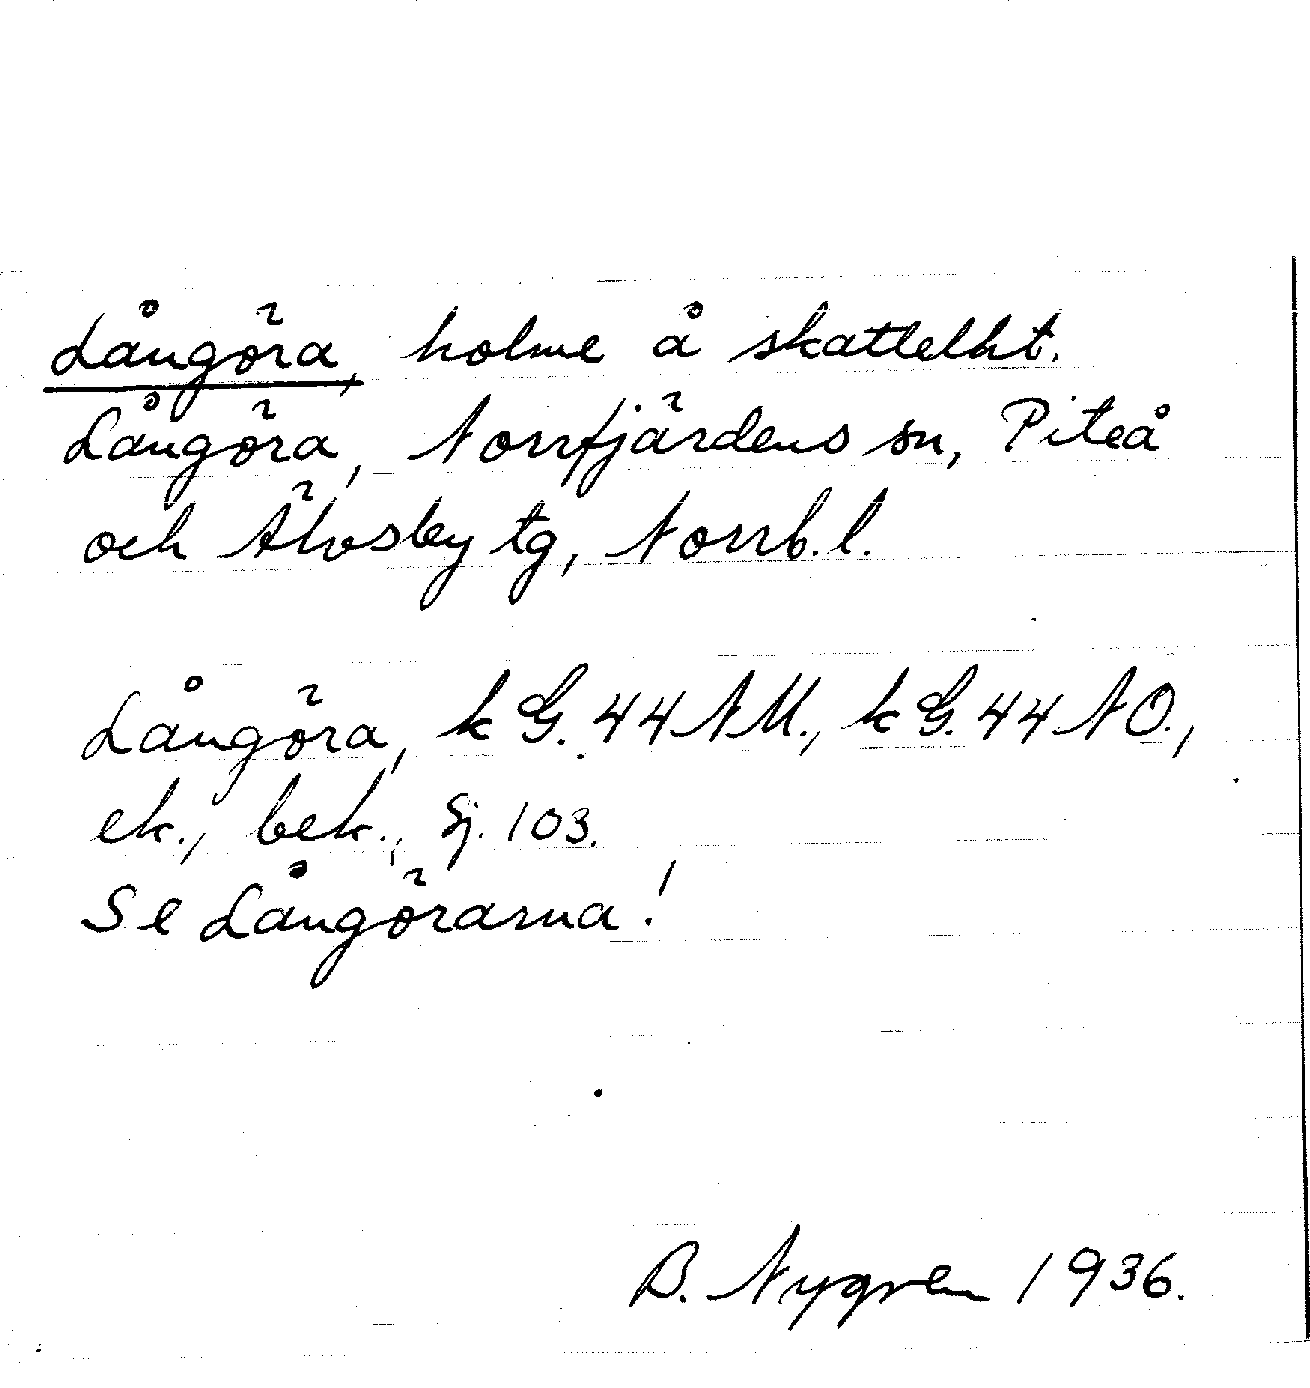 Långöra, holme å skattelht.
Långöra, Norrfjärdens sn, Piteå
och Älvsby tg, Norrb. l.
Långöra, k G. 44 NM., k G. 44 NO.,
ek., bek., Sj. 103.
Se Långörarna!
B. Nygren 1936.